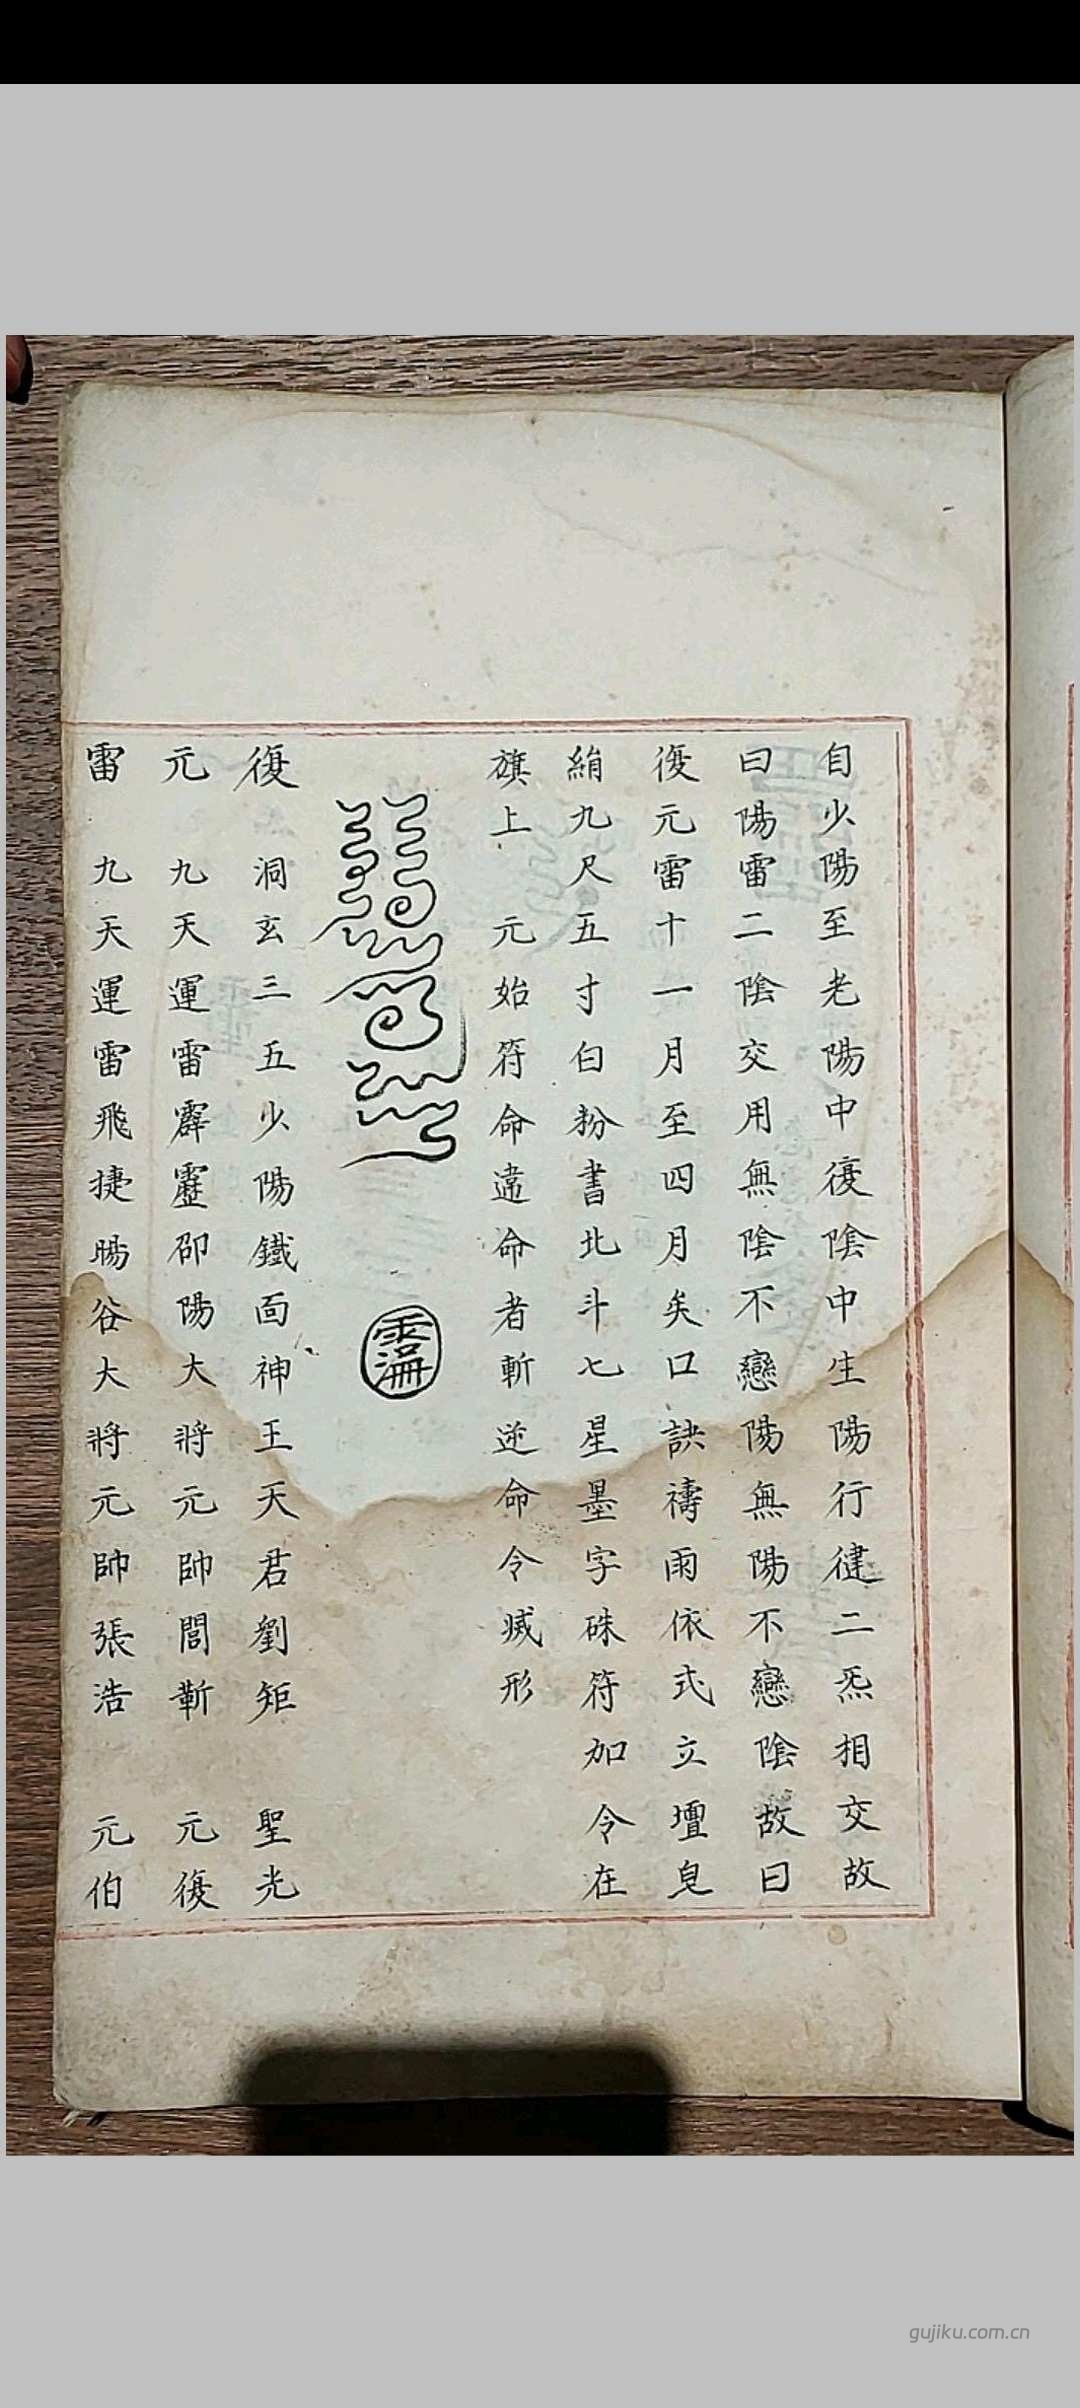 自少陽至老陽中復陰中生陽行徤二炁相交故
曰陽雷二陰交用無陰不戀陽無陽不戀陰故曰
復元雷十一月至四月矣口訣禱雨依式立壇皂
絹九尺五寸白粉書北斗七星墨字硃符加令在
旗上 元始符命違命者斬逆命令滅形
復 洞玄三五少陽鐵面神王天君劉矩 聖光
元 九天運雷霹靂邵陽大將元帥閻靳 元復
雷 九天運雷飛捷暘谷大將元帥張浩 元伯
gujiku.com.cn